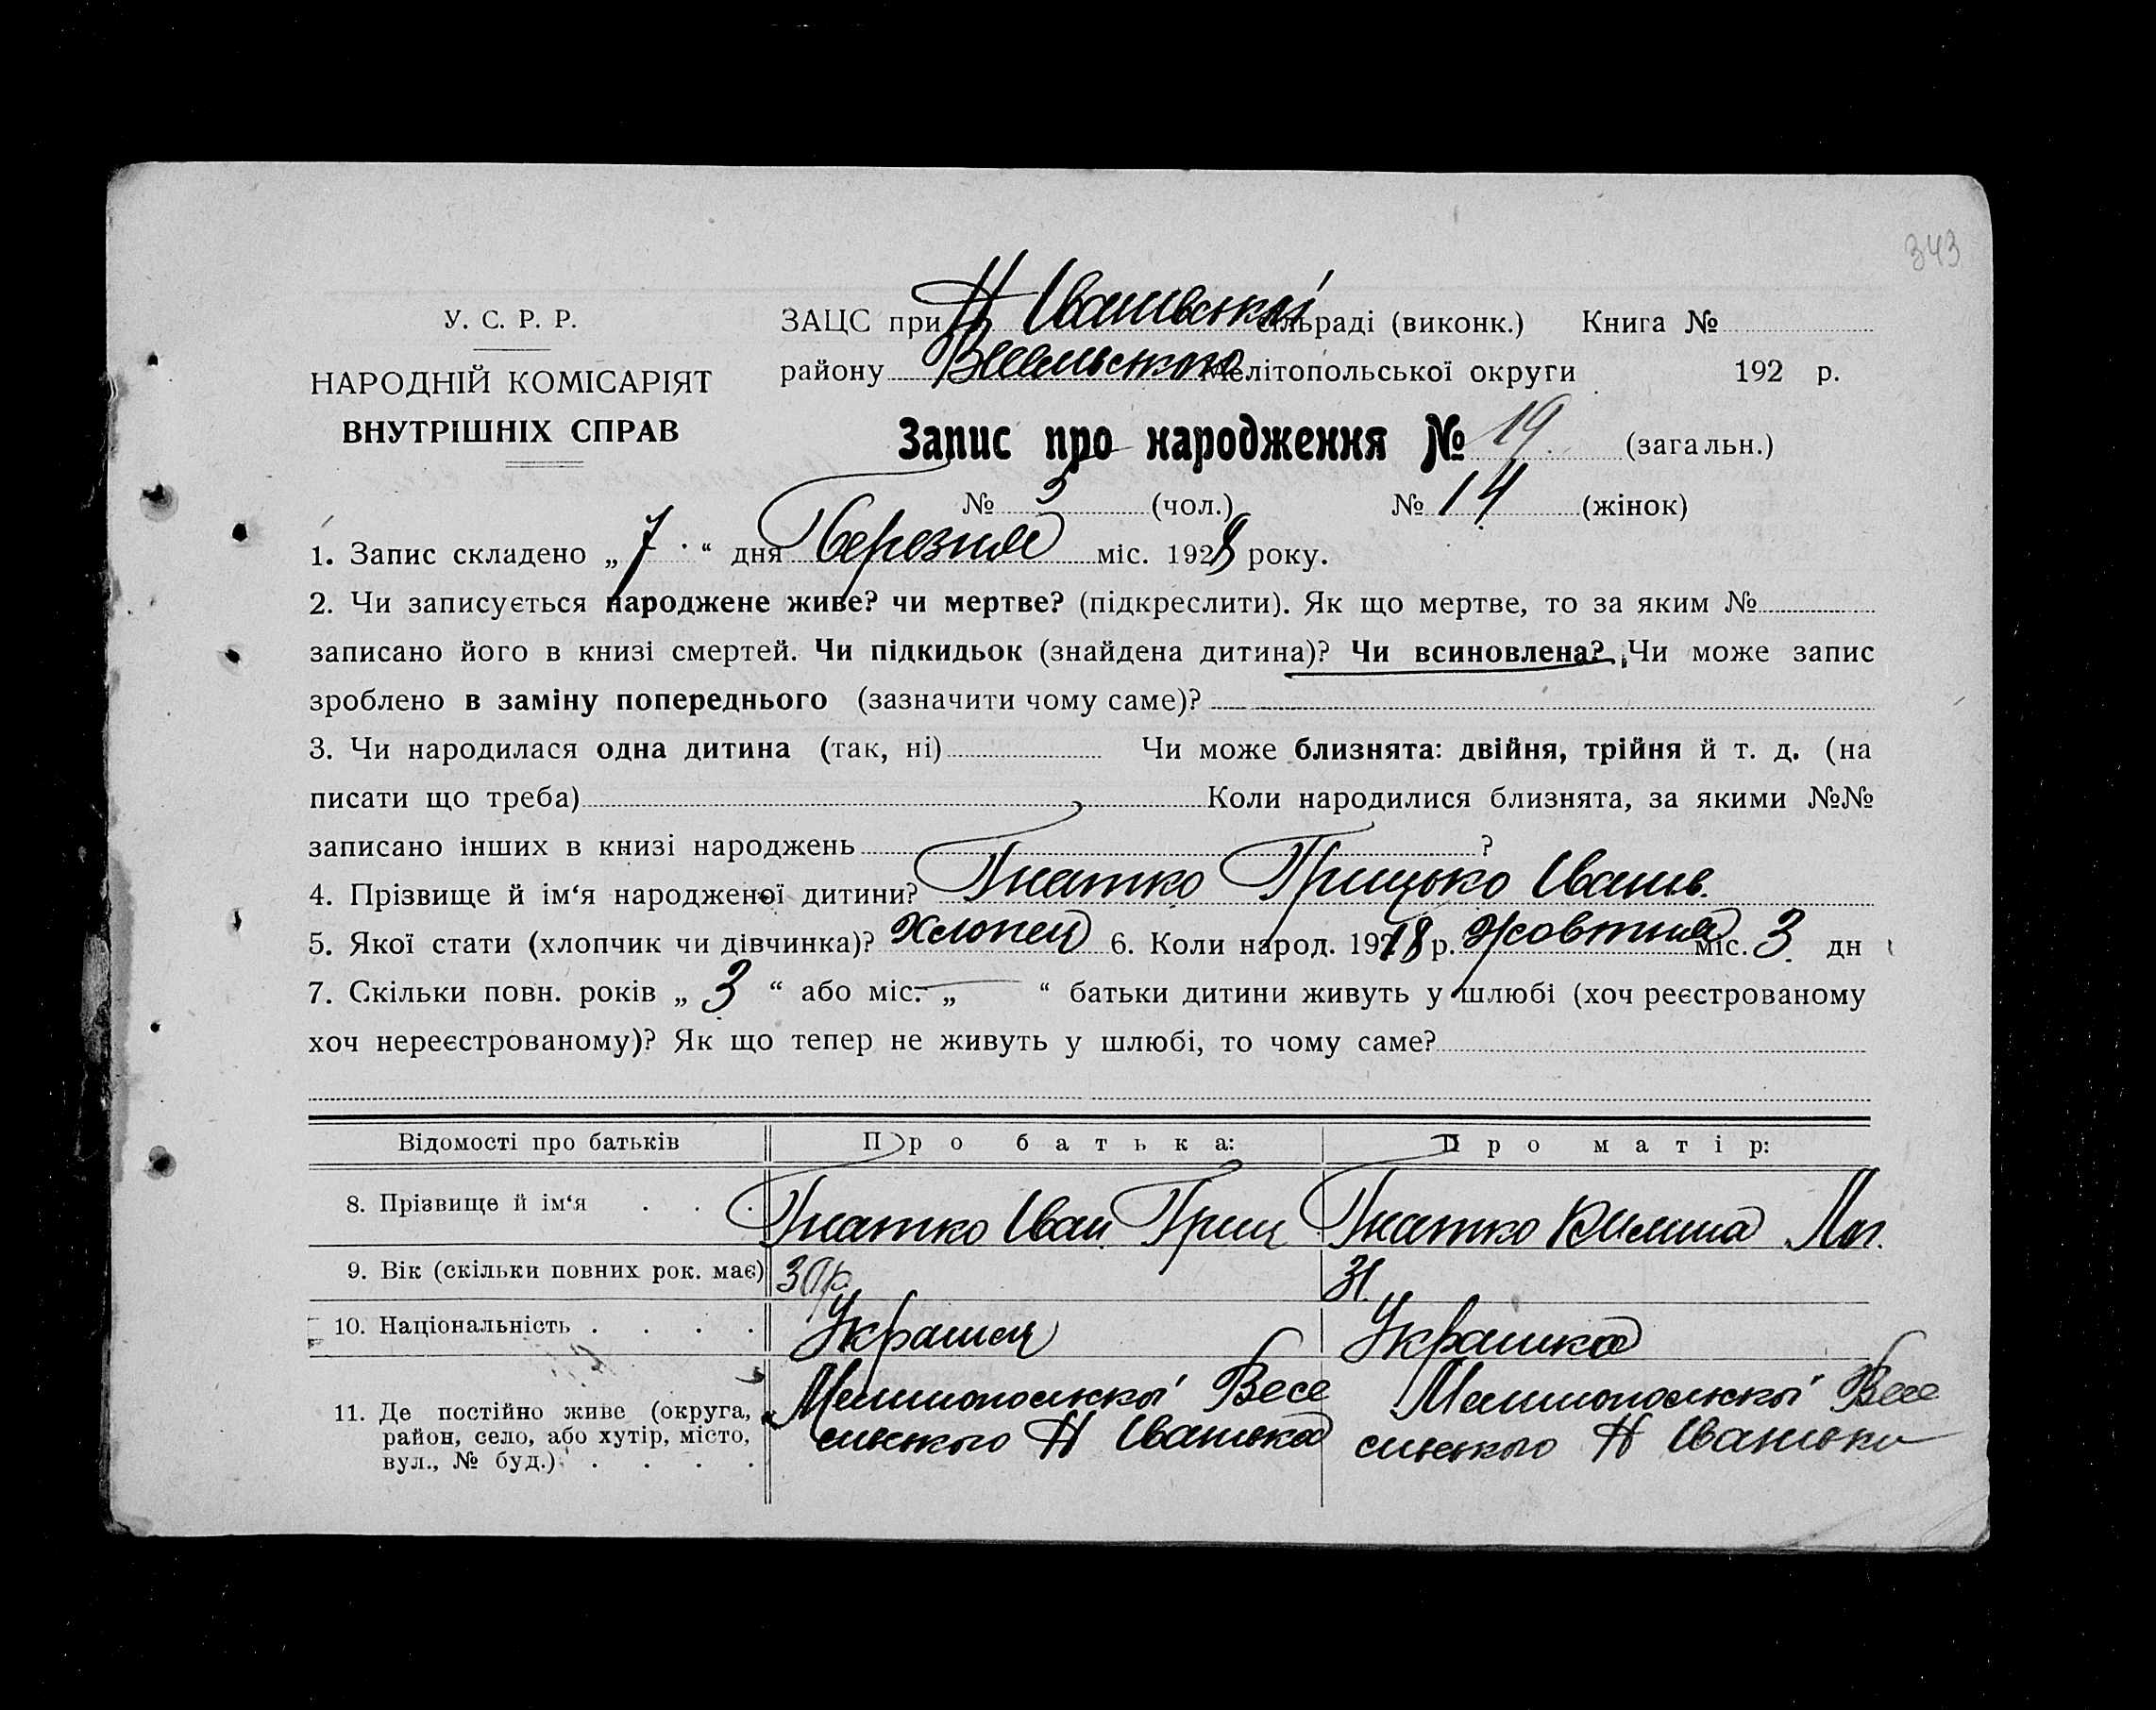 343
У. С. Р. Р.
НАРОДНІЙ КОМІСАРІЯТ
ВНУТРІШНІХ СПРАВ
ЗАЦС при Н Іванівській сільраді (виконк.) Книга №
району Весельського Мелітопольської округи 192 р.
Запис про народження № 19 (загальн.)
№ 5 (чол.) № 14 (жінок)
1. Запис складено „ 7 “ дня Березня міс. 1928 року.
2. Чи записується народжене живе? чи мертве? (підкреслити). Як що мертве, то за яким №
записано його в книзі смертей. Чи підкидьок (знайдена дитина)? Чи всиновлена? Чи може запис
зроблено в заміну попереднього (зазначити чому саме)?
3. Чи народилася одна дитина (так, ні) Чи може близнята: двійня, трійня й т. д. (на
писати що треба) Коли народилися близнята, за якими №№
записано інших в книзі народжень ?
4. Прізвище й ім‘я народженої дитини? Гнатко Грицько Іванів.
5. Якої стати (хлопчик чи дівчинка)? Хлопец 6. Коли народ. 1918 р. Жовтня міс. 3 дн
7. Скільки повн. років „ 3 “ або міс. „ — “ батьки дитини живуть у шлюбі (хоч реєстрованому
хоч нереєстрованому)? Як що тепер не живуть у шлюбі, то чому саме?
Відомості про батьків Про батька: Про матір:
8. Прізвище й ім‘я . . . Гнатко Іван Гриц Гнатко Килина
9. Вік (скільки повних рок. має) 31.
10. Національність . . . . Українец Українка
11. Де постійно живе (округа, Мелитопольскої Весе Мелитопольскої Весе
район, село, або хутір, місто, лівського Н Іванівка лівського Н Іванівки
вул., № буд.) . . . .